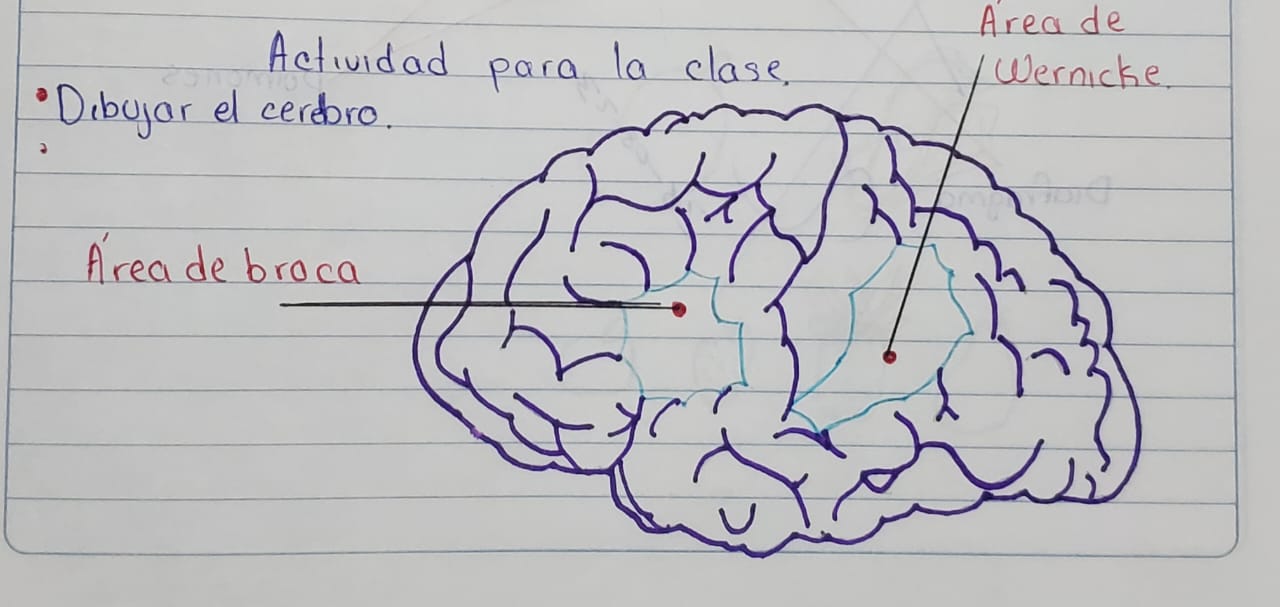 Actividad para la clase.
• Dibujar el cerebro.
Área de
Wernicke.
Área de broca